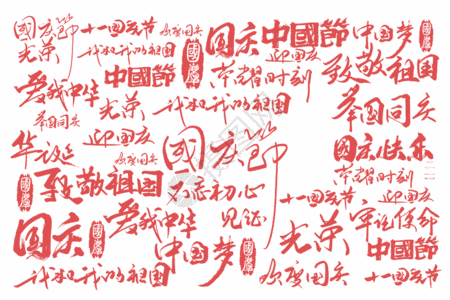 國慶節
十一国庆节
国庆
中國節
中国梦
光荣
我和我的祖国
迎国庆
爱我中华
中國節
荣耀时刻
致敬祖国
光荣
我和我的祖国
举国同庆
举国同庆
迎国庆
华诞
欢度国庆
國庆節
国庆快乐
荣耀时刻
致敬祖国
不忘初心
十一国庆节
迎国庆
国庆
爱我中华
见证
光荣
牢记使命
中国梦
中國節
我和我的祖国
欢度国庆
十一国庆节